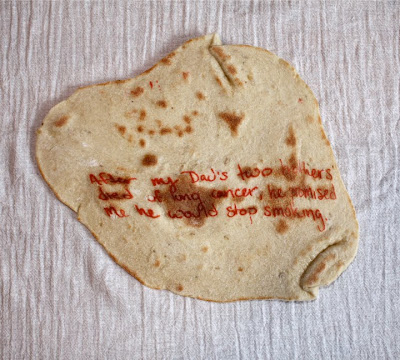 After my Dad's two brothers
died of lung cancer, he promised
me he would stop smoking.